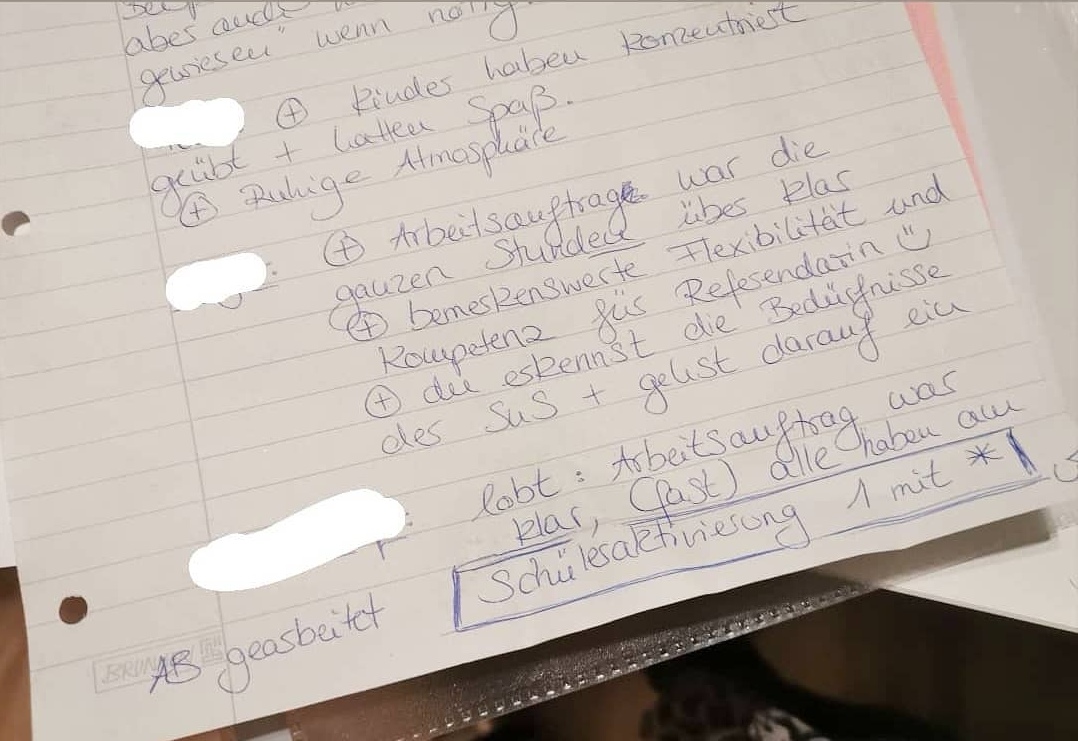 aber auch
gewiesen" wenn nötig
⊕ Kinder haben konzentriert
geübt + hatten Spaß.
⊕ Ruhige Atmosphäre
: ⊕ Arbeitsauftrag war die
ganzen Stunden über klar
⊕ bemerkenswerte Flexibilität und
Kompetenz für Referendarin Ü
⊕ du erkennst die Bedürfnisse
der SuS + gehst darauf ein
: lobt: Arbeitsauftrag war
klar, (fast) alle haben am
AB gearbeitet
Schüleraktivierung 1 mit *
BRUN